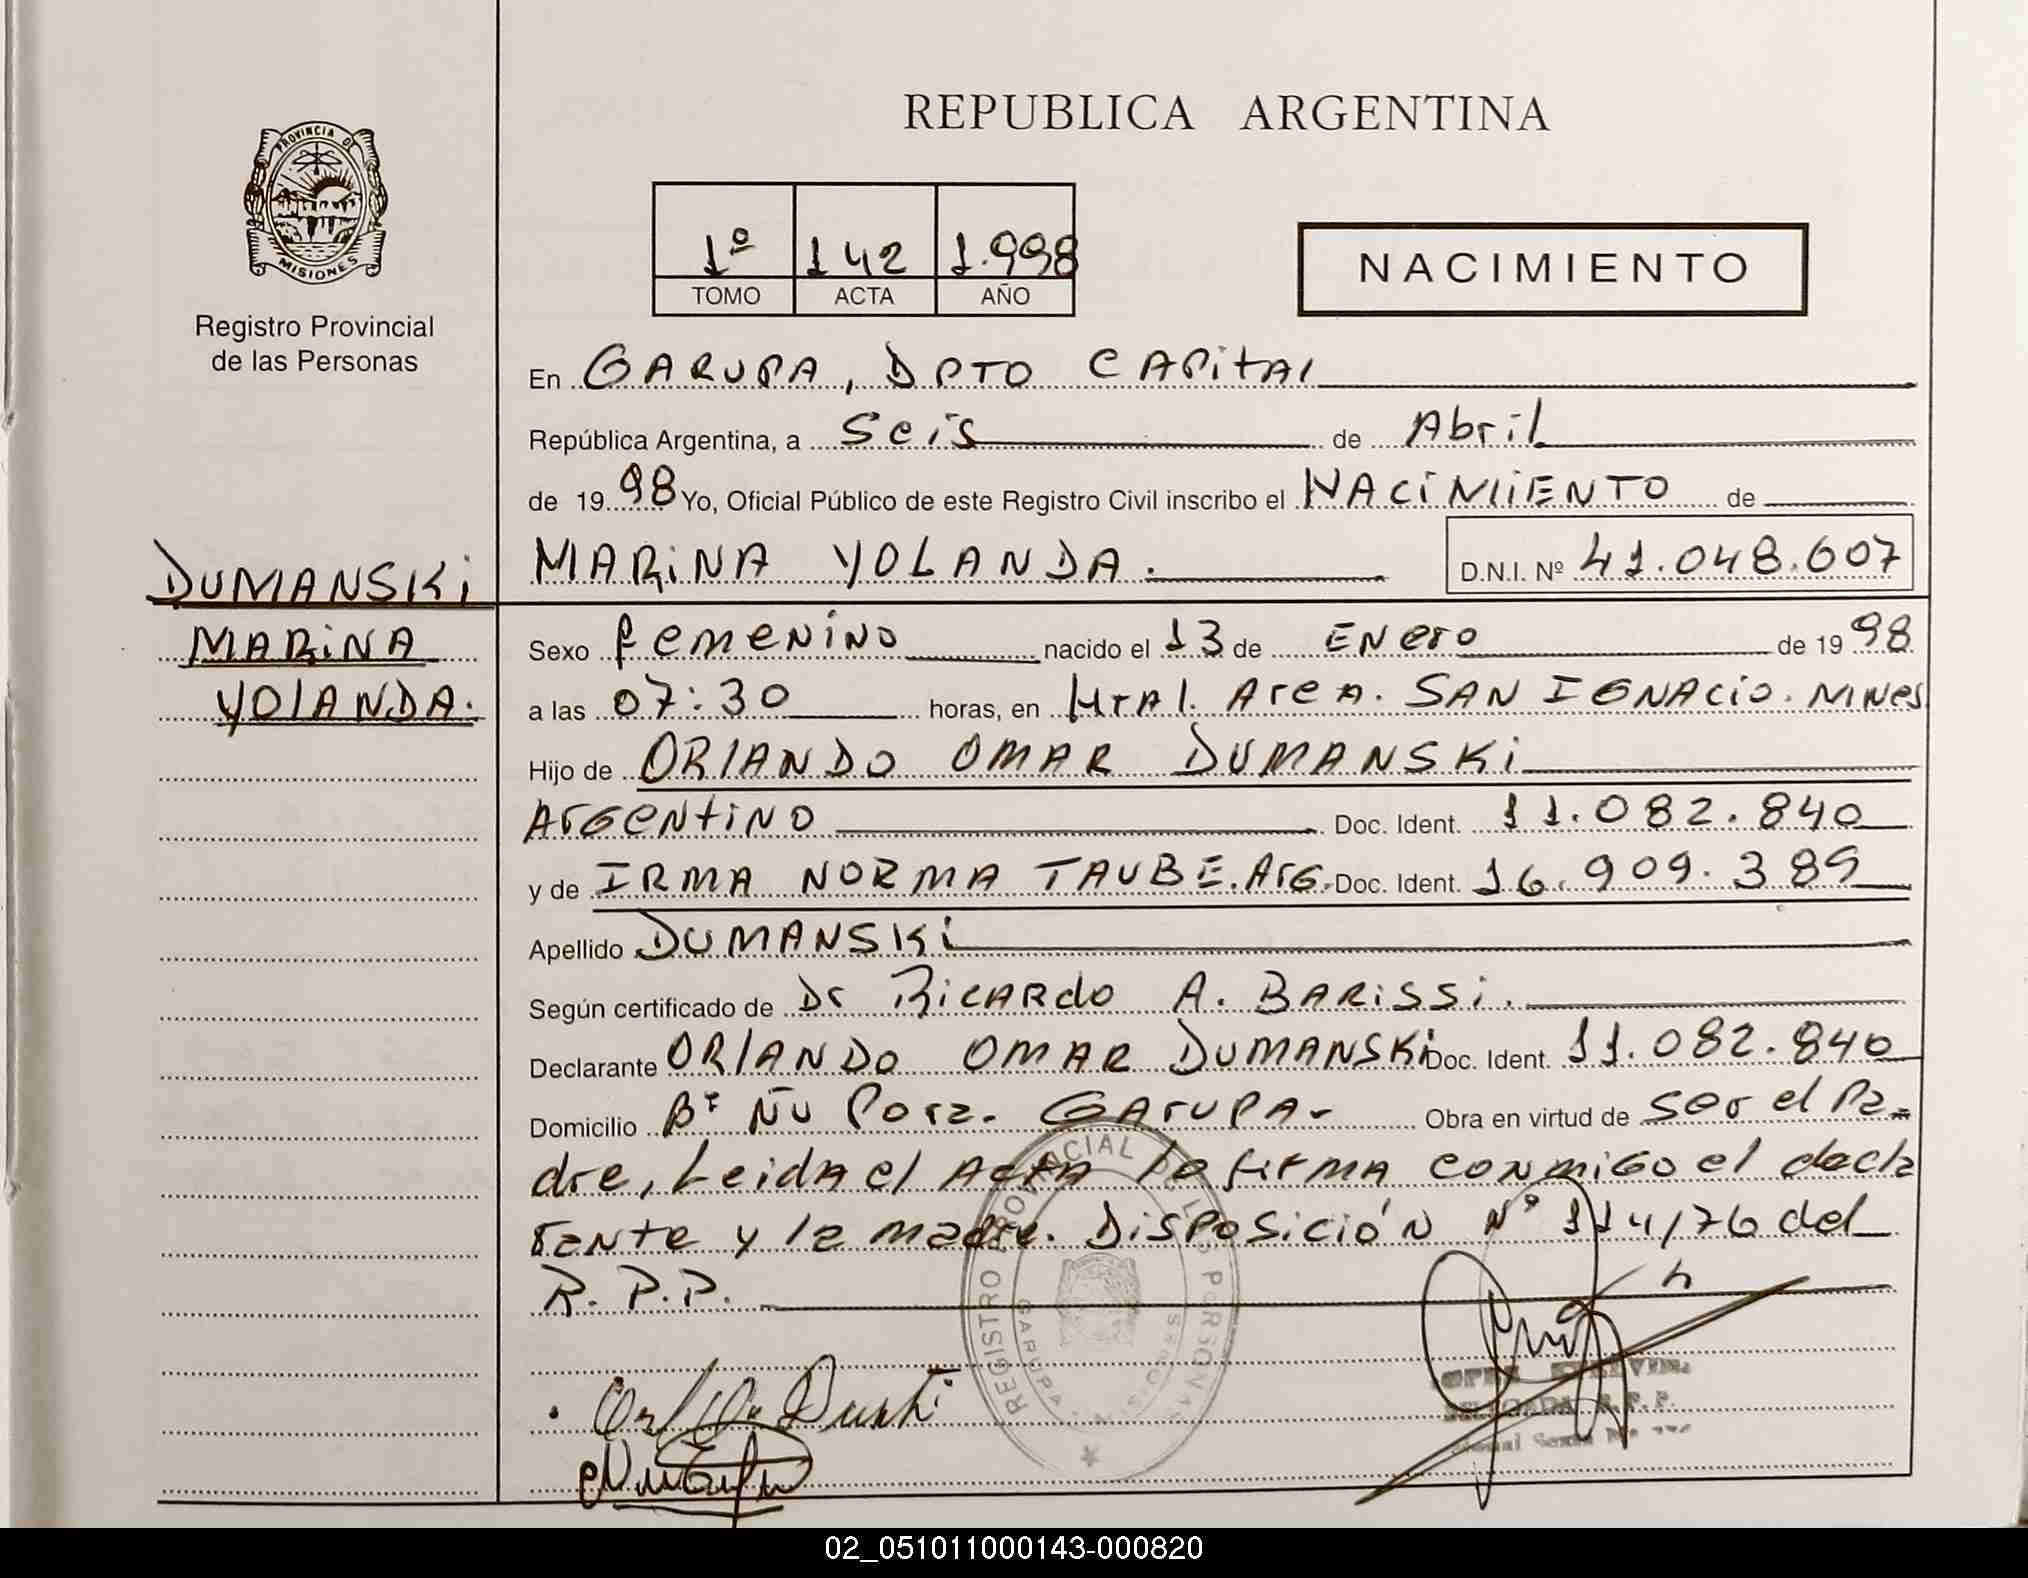 REPUBLICA ARGENTINA
PROVINCIA DE
MISIONES
Registro Provincial
de las Personas
1º 142 1.998
TOMO ACTA AÑO
NACIMIENTO
En GARUPA, DPTO CAPITAL
República Argentina, a Seis de Abril
de 1998 Yo, Oficial Público de este Registro Civil inscribo el NACIMIENTO de
DUMANSKI
MARINA YOLANDA. D.N.I. Nº 41.048.607
MARINA
YOLANDA.
Sexo femenino nacido el 13 de ENero de 1998
a las 07:30 horas, en Htal. Area. SAN IGNACio. MNes
Hijo de ORLANDO OMAR DUMANSKI
ArGentino Doc. Ident. 11.082.840
y de IRMA NORMA TAUBE. ArG. Doc. Ident. 16.909.389
Apellido DUMANSKI
Según certificado de Dr RicARdo A. BARiSSi.
Declarante ORLANDO OMAR DUMANSKI Doc. Ident. 11.082.840
Domicilio Bº Ñu Pora. GArUPA- Obra en virtud de ser el Pa-
dre, Leida el Acta la firma conmigo el decla
rante y la madre. Disposición Nº 114/76 del
R. P.P.
REGISTRO PROVINCIAL DE LAS PERSONAS
GARUPA - MISIONES
DELEGADA R.P.P.
02_051011000143-000820